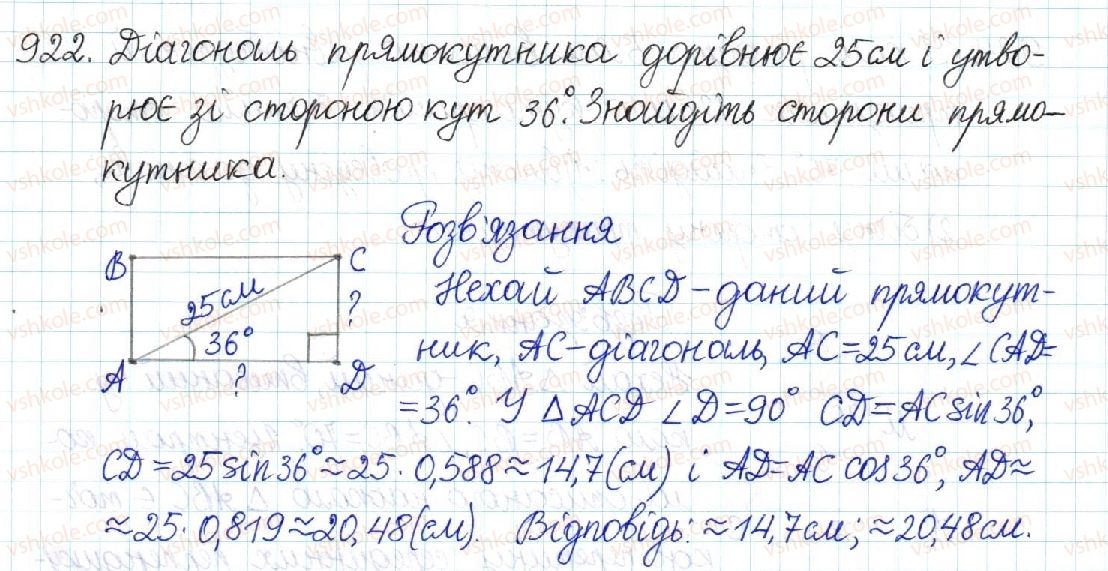 922. Діагональ прямокутника дорівнює 25 см і утво-
рює зі стороною кут 36°. Знайдіть сторони прямо-
кутника.
Розв'язання
B
C
25 см
?
36°
A
?
D
Нехай ABCD - даний прямокут-
ник, AC - діагональ, AC = 25 см, ∠CAD =
= 36°. У △ACD ∠D = 90° CD = AC sin 36°,
CD = 25 sin 36° ≈ 25 · 0,588 ≈ 14,7 (см) і AD = AC cos 36°, AD ≈
≈ 25 · 0,819 ≈ 20,48 (см). Відповідь: ≈ 14,7 см; ≈ 20,48 см.